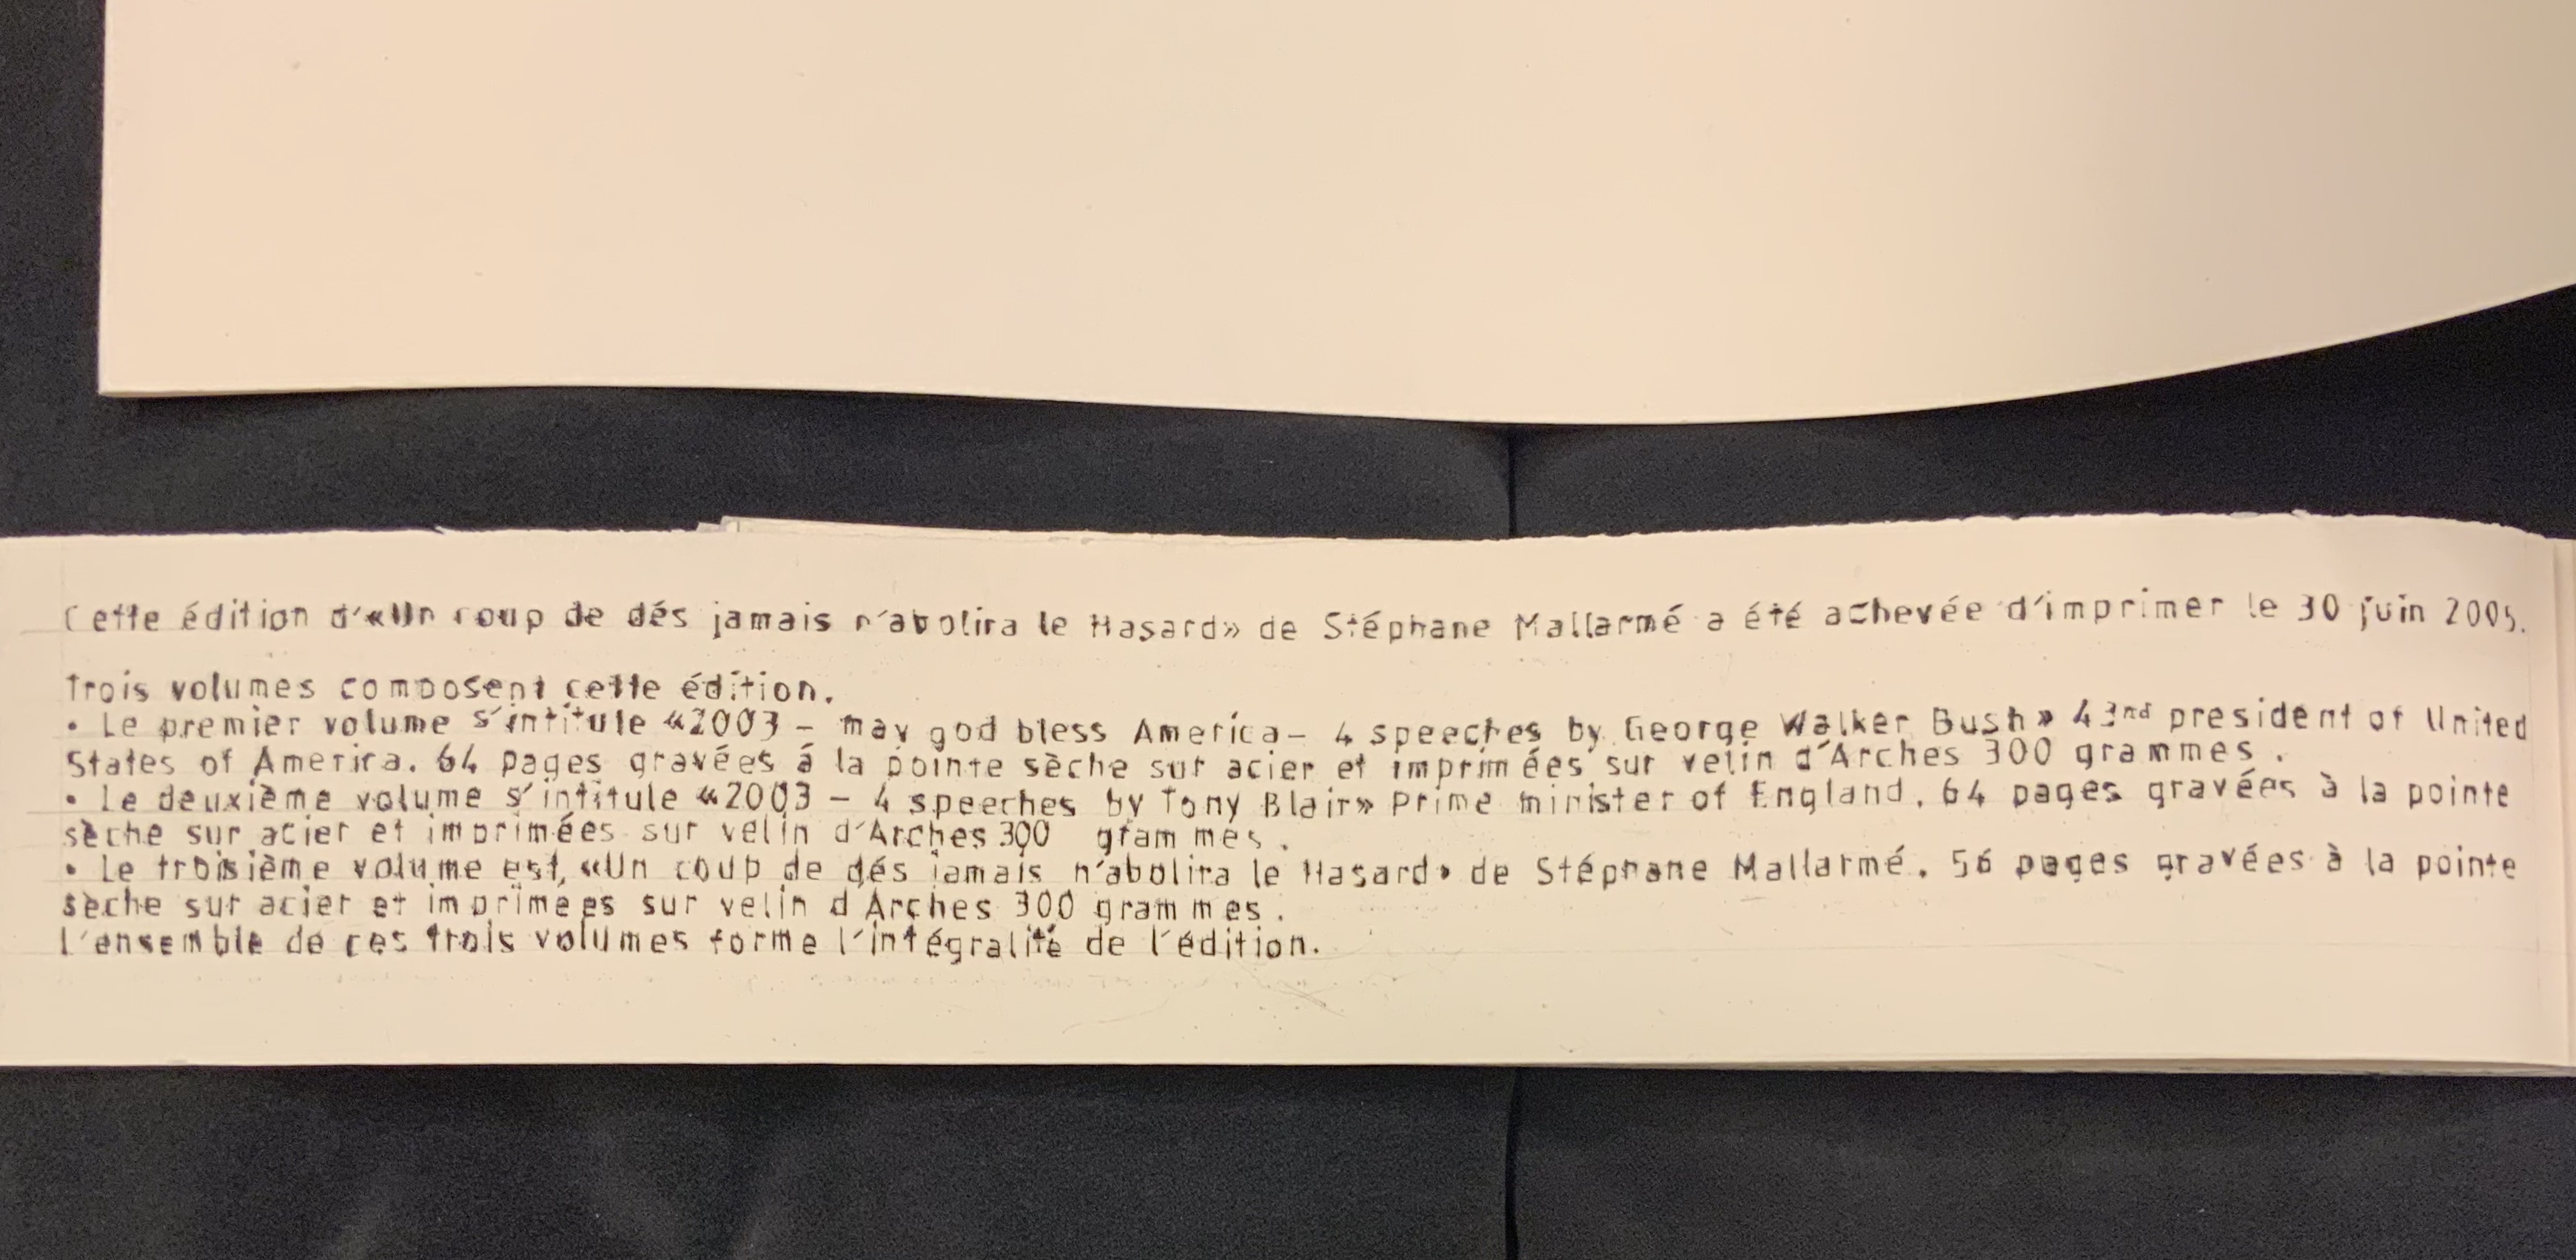 Cette édition d'«Un coup de dés jamais n'abolira le Hasard» de Stéphane Mallarmé a été achevée d'imprimer le 30 juin 2005.
Trois volumes composent cette édition.
• Le premier volume s'intitule «2003 – may god bless America – 4 speeches by George Walker Bush» 43nd president of United
States of America. 64 pages gravées á la pointe sèche sur acier et imprimées sur velin d'Arches 300 grammes.
• Le deuxième volume s'intitule «2003 – 4 speeches by Tony Blair» Prime minister of England. 64 pages gravées à la pointe
sèche sur acier et imprimées sur velin d'Arches 300 grammes.
• Le troisième volume est «Un coup de dés jamais n'abolira le Hasard» de Stéphane Mallarmé. 56 pages gravées à la pointe
sèche sur acier et imprimées sur velin d'Arches 300 grammes.
L'ensemble de ces trois volumes forme l'intégralité de l'édition.